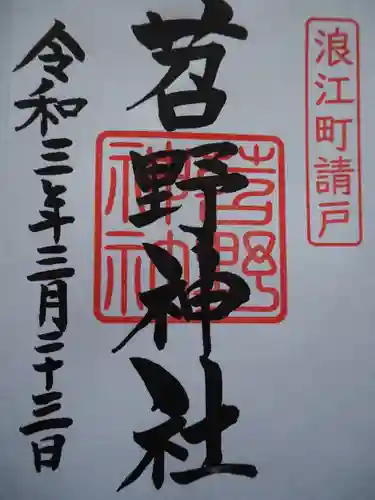 浪江町請戸
苕野神社
令和三年三月二十三日
苕野神社